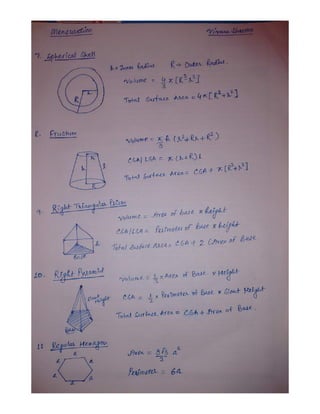 Mensuration
7. Spherical Shell
r = Inner Radius R → Outer Radius.
Volume = 4/3 π [R³-r³]
Total Surface Area = 4π[R²+r²]
R r
8. Frustum
Volume = π/3 h (r²+Rr+R²)
CSA/LSA = π (r+R)l
Total Surface Area = CSA + π [R²+r²]
r
h l
R
9. Right Triangular Prism
Volume = Area of base x height
CSA/LSA = Perimeter of base x height
Total Surface Area = CSA + 2 (Area of Base
Base
10. Right Pyramid
Volume = 1/3 x Area of Base x Height
CSA = 1/2 x Perimeter of Base x Slant Height
Total Surface Area = CSA + Area of Base.
Slant Height
Base
11 Regular Hexagon
Area = 3√3/2 a²
Perimeter = 6a
a
a a
a a
a